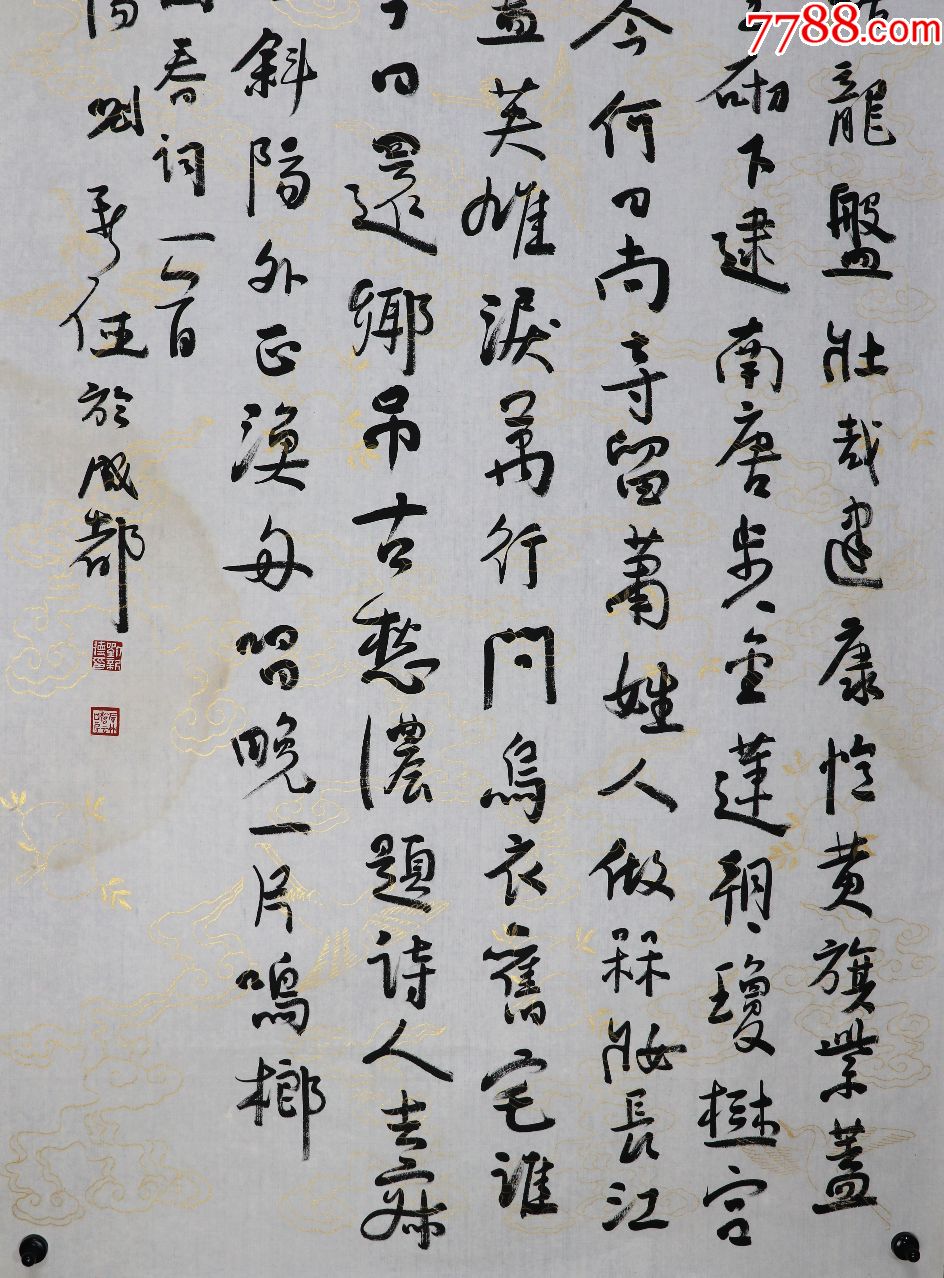 7788.com
龍盤壯哉建康怆黄旗紫蓋
砌下建南唐步、金蓮朝、瓊樹宮
今何日尚寺留蕭姓人做槑妝長江
英雄淚萬行問烏衣舊宅誰
日還鄉吊古愁濃題詩人去寂
斜陽外正漁舟唱晚一片鳴榔
春詞一百
劉
於成都